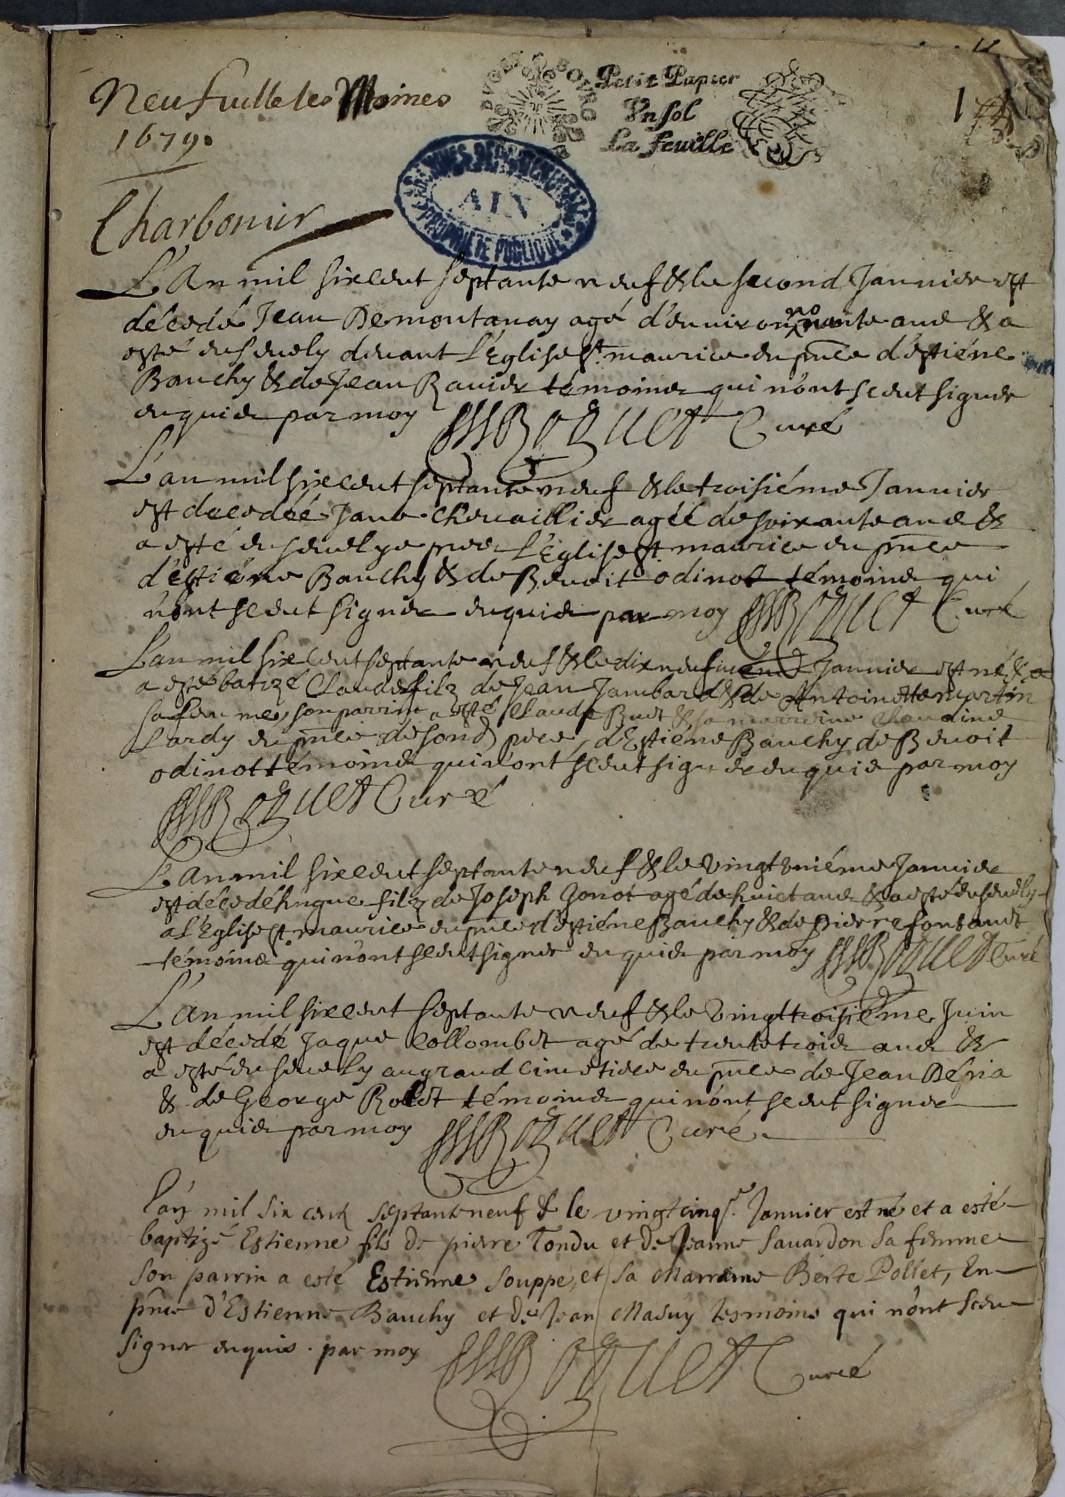 Neufville les Moines
1679.
Petit Papier
Un sol
La feuille
1
ARCHIVES DEPARTEMENTALES
AIN
PROPRIÉTÉ PUBLIQUE
Charbonier
L'An mil sixcent septante neuf & le second Janvier est
décedé Jean Demontanay agé d'environ nonante ans & a
esté enseuely devant L'Eglise St maurice en pnce d'estiene
Bauchy & de Jean Ravier témoins qui n'ont sceut signer
enquis par moy Curé
L'an mil sixcent septante neuf & le troisiéme Janvier
est decedée Jane Chevaillier agée de soixante ans &
a esté enseuelye pres L'Eglise St maurice en pnce
d'estiéne Bauchy & de Benoit odinot témoins qui
n'ont sceut signer enquis par moy Curé
L'an mil sixcent septante neuf & le dixneufvieme Janvier est né &
a esté batizé Claude filz de Jean Jambard & de Antoinette martin
sa femme, son parrin a esté Claude & sa marreine Claudine
Lardy en pnce de sond pere, d'Estiéne Bauchy de Benoit
odinot témoins qui n'ont sceut signer enquis par moy
Curé
L'An mil sixcent septante neuf & le vingtuniéme Janvier
est décedé hugue filz de Joseph Gonot agé de huict ans & a esté enseuely
a L'Eglise St maurice en pnce d'estiéne Bauchy & de Pierre
témoins qui n'ont sceut signer enquis par moy Curé
L'An mil sixcent septante neuf & le vingttroisiéme Juin
est décedé Jaque Collombet agé de trentetrois ans &
a esté enseuely au grand cimetiere en pnce de Jean Déria
& de George Rolet témoins qui n'ont sceut signer
enquis par moy Curé
L'an mil six cent septante neuf & le vingt cinqe Janvier est né et a esté
baptizé Estienne fils de pierre Tondu et de Jeanne Savardon sa femme
son parrin a esté Estienne Souppe, et sa Marraine Berte Pollet, En
pnce d'Estienne Bauchy et de Jean Maduy tesmoins qui n'ont sceu
signer enquis par moy Curé